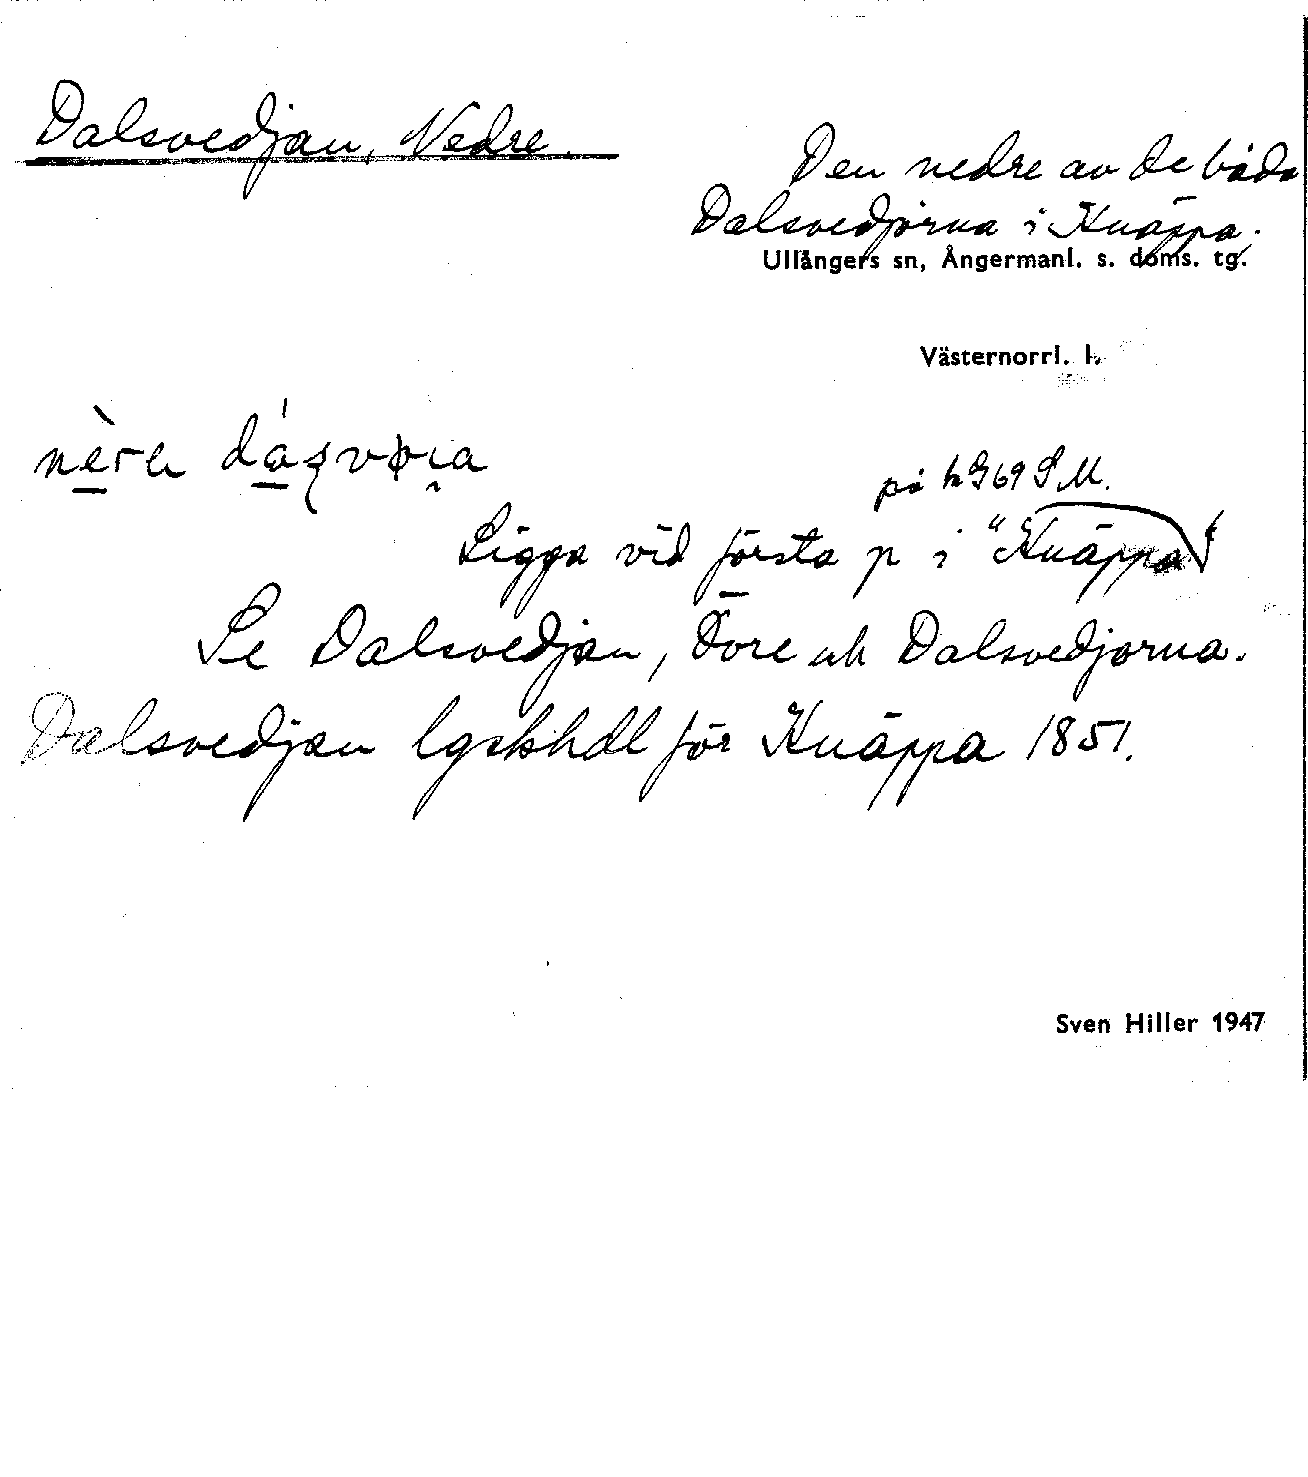 Dalsvedjan, Nedre.
Den nedre av de båda
Dalsvedjorna i Knäppa.
Ullångers sn, Ångermanl. s. doms. tg.
Västernorrl. l.
på kG69 SM.
Ligga vid första p i "Knäppa"
Se Dalsvedjan, Övre och Dalsvedjorna.
Dalsvedjan lgskhdl för Knäppa 1851.
Sven Hiller 1947